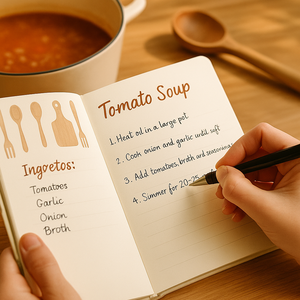 Ingretos:
Tomatoes
Garlic
Onion
Broth
Tomato Soup
1. Heat oil in a large pot
2. Cook onion and garlic until soft
3. Add tomatoes, broth and seasonings
4. Simmer for 20-25